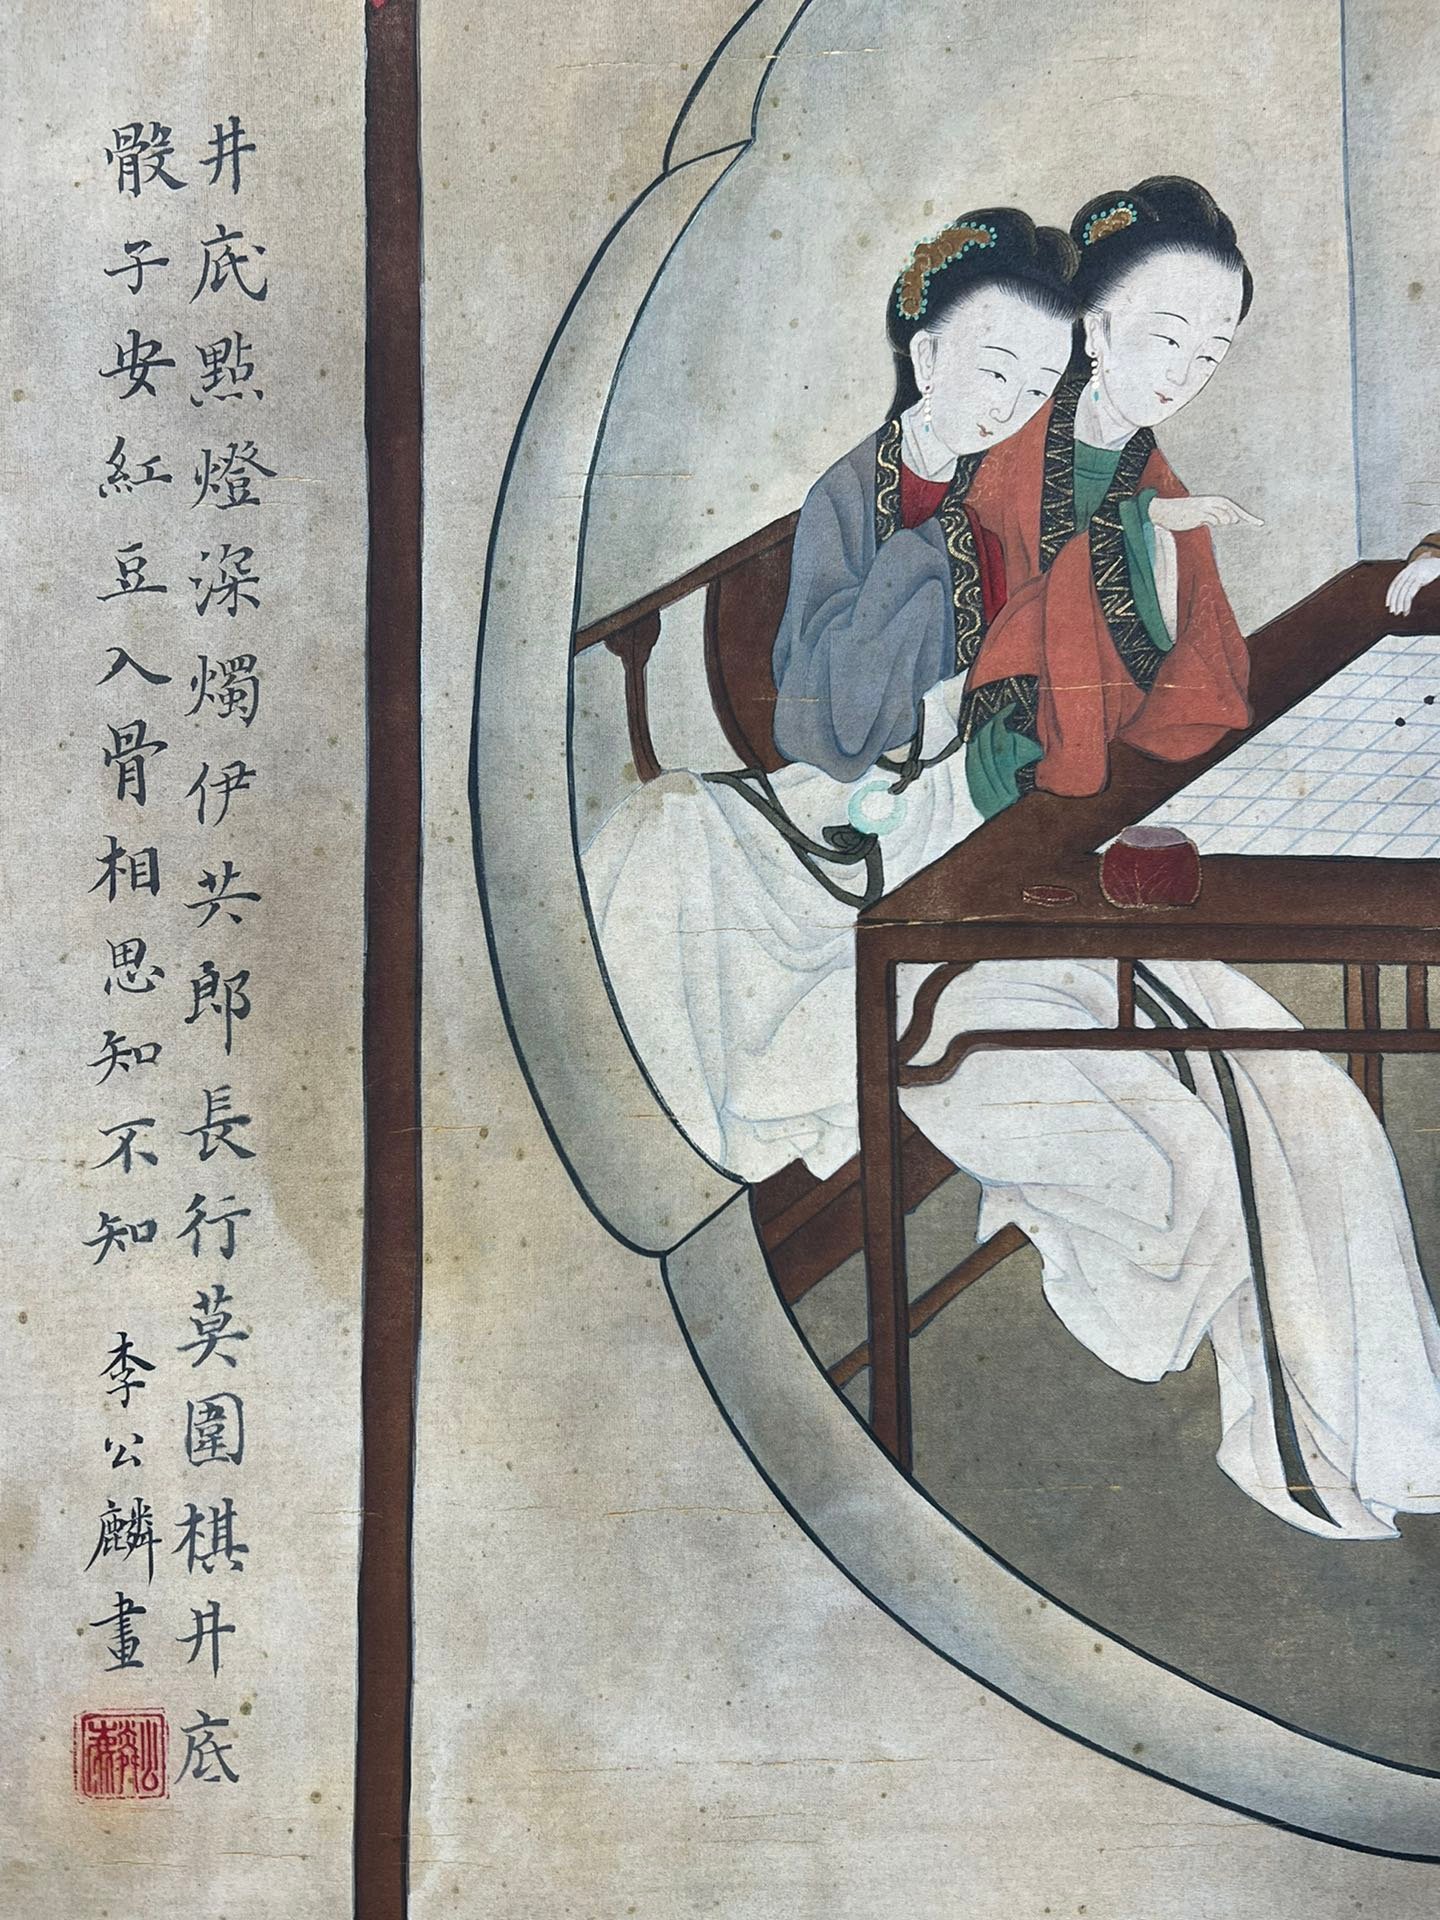 井底點燈深燭伊共郎長行莫圍棋井底
骰子安紅豆入骨相思知不知 李公麟畫
公麟